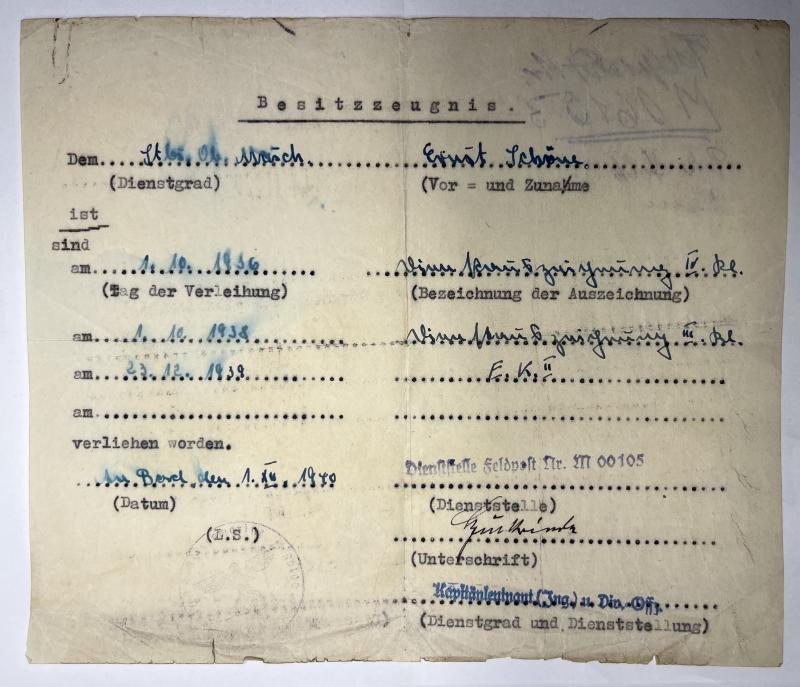 Besitzzeugnis.
Dem Stbs. Ob. Masch. Ernst Schöne
(Dienstgrad) (Vor = und Zuname
ist
sind
am 1. 10. 1936 Dienstauszeichnung IV. Kl.
(Tag der Verleihung) (Bezeichnung der Auszeichnung)
am 1. 10. 1938 Dienstauszeichnung III. Kl.
am 23. 12. 1939 E. K. II
am
verliehen worden.
An Bord den 1. 1940 Dienststelle Feldpost Nr. M 00105
(Datum) (Dienststelle)
(L.S.)
(Unterschrift)
Kapitänleutnant (Ing.) u. Div.-Offz.
(Dienstgrad und Dienststellung)